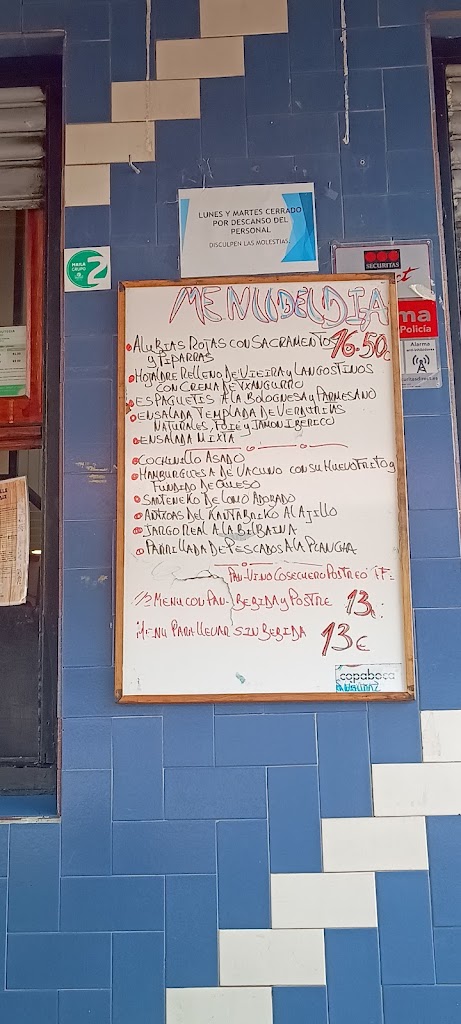 LUNES Y MARTES CERRADO
POR DESCANSO DEL
PERSONAL
DISCULPEN LAS MOLESTIAS.
MAILA
GRUPO
2
SECURITAS
Policía
Alarma
MENU DEL DIA
ALUBIAS ROJAS CON SACRAMENTOS 16.50€
Y PIPARRAS
HOJALDRE RELLENO DE VIEIRA Y LANGOSTINOS
CON CREMA DE TXANGURRO
ESPAGUETIS A LA BOLOGNESA Y PARMESANO
ENSALADA TEMPLADA DE VERDURITAS
NATURALES, FOIE Y JAMON IBERICO
ENSALADA MIXTA
COCHINILLO ASADO
HAMBURGUESA DE VACUNO CON SU HUEVO FRITO Y
FUNDIDO DE QUESO
SANTENEKO DE LOMO ADOBADO
ANTXOAS DEL KANTABRIKO AL AJILLO
JARGO REAL A LA BILBAINA
PARRILLADA DE PESCADOS A LA PLANCHA
PAN-VINO COSECHERO POSTRE O
1/2 MENU CON PAN-BEBIDA Y POSTRE 13
MENU PARA LLEVAR SIN BEBIDA 13€
copaboca